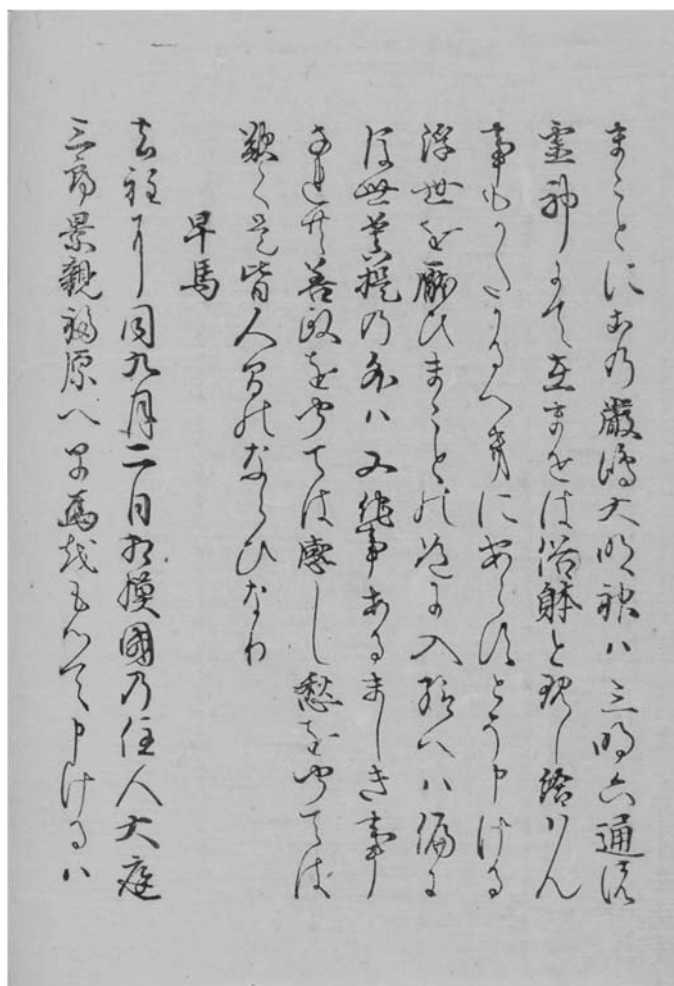 まことにこの厳嶋大明神ハ三明六通の
霊神にて在ませは俗躰と現し給ハん
事もかたかるへきにあらすとそ申ける
浮世を厭ひまことの道に入ぬれハ偏に
後世菩提の外ハ又他事あるましき事
なれ共善政を聞ては感し愁を聞ては
歎く是皆人間のならひなり
早馬
去程に同九月二日相摸國の住人大庭
三郎景親福原へ早馬をもつて申けるハ